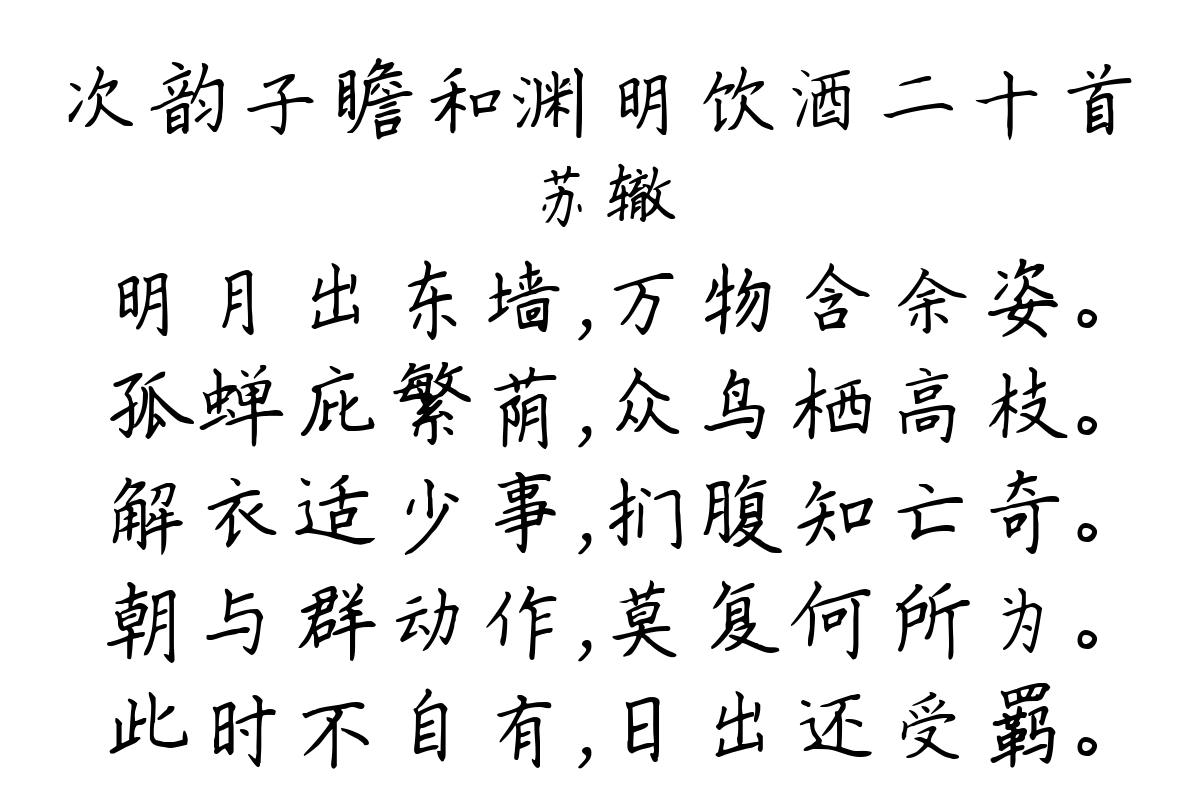 次韵子瞻和渊明饮酒二十首
苏辙
明月出东墙,万物含余姿。
孤蝉庇繁荫,众鸟栖高枝。
解衣适少事,扪腹知亡奇。
朝与群动作,莫复何所为。
此时不自有,日出还受羁。